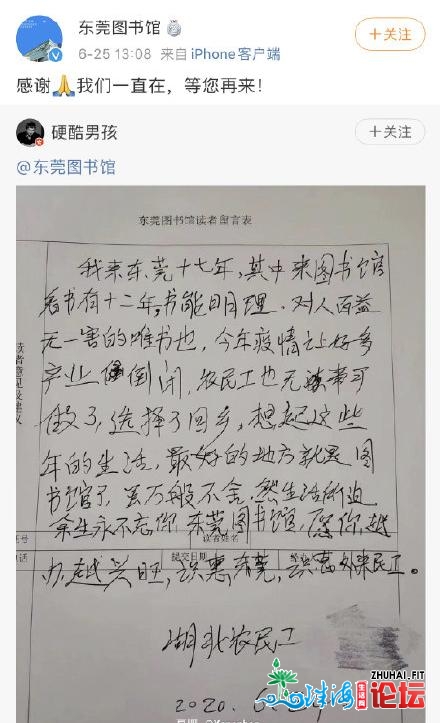 东莞图书馆
6-25 13:08 来自 iPhone客户端
+关注
感谢🙏我们一直在，等您再来！
硬酷男孩
+关注
@东莞图书馆
东莞图书馆读者留言表
我来东莞十七年，其中来图书馆
看书有十二年，书能明理，对人百益
无一害的唯书也，今年疫情让好多
产业倒闭，农民工也无事可
做了，选择了回乡，想起这些
年的生活，最好的地方就是图
书馆了，万般不舍，然生活所迫
余生永不忘你，东莞图书馆，愿你越
读者姓名
电话
提交日期
办越兴旺，识惠东莞，识惠外来民工。
湖北农民工
2020. 6.
ZHUHAI.FIT
珠海
生活网
论坛